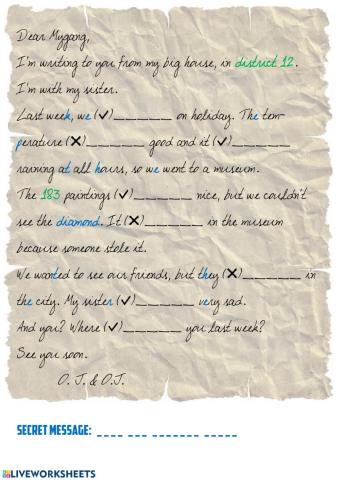 Dear Mygang,
I'm writing to you from my big house, in district 12.
I'm with my sister.
Last week, we (✓)______ on holiday. The tem-
perature (✗)______ good and it (✓)______
raining at all hours, so we went to a museum.
The 183 paintings (✓)______ nice, but we couldn't
see the diamond. It (✗)______ in the museum
because someone stole it.
We wanted to see our friends, but they (✗)______ in
the city. My sister (✓)______ very sad.
And you? Where (✓)______ you last week?
See you soon.
O. J. & O.J.
SECRET MESSAGE: ____ ___ _______ _____
LIVEWORKSHEETS